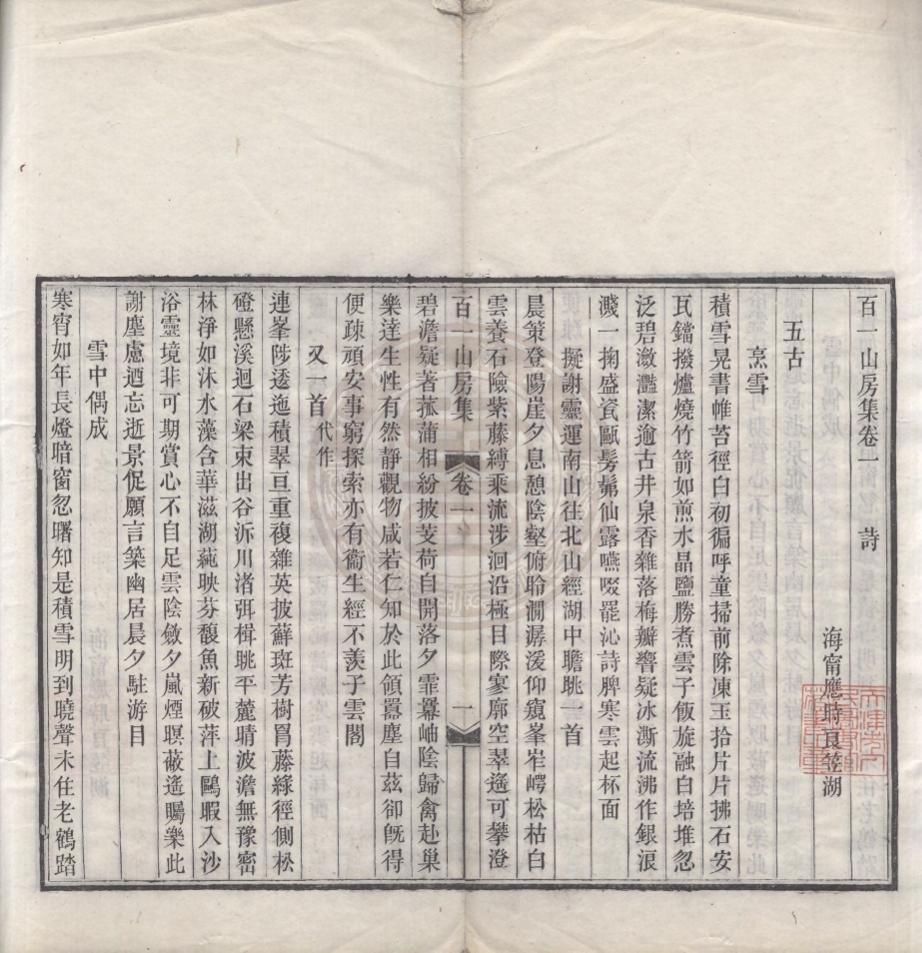 百一山房集卷一　詩
海甯應時良笠湖
五古
烹雪
積雪晃書帷苔徑白初徧呼童掃前除凍玉拾片片拂石安
瓦鐺撥爐燒竹箭如煎水晶鹽勝煮雲子飯旋融白培堆忽
泛碧瀲灩潔逾古井泉香雜落梅瓣響疑冰澌流沸作銀浪
濺一掬盛瓷甌髣髴仙露嚥啜罷沁詩脾寒雲起杯面
擬謝靈運南山往北山經湖中瞻眺一首
晨策登陽崖夕息憩陰壑俯聆澗潺湲仰窺峯岝崿松枯白
雲養石險紫藤縛乘流涉洄沿極目際寥廓空翠遙可攀澄
百一山房集　卷一　一
碧澹疑著菰蒲相紛披芰荷自開落夕霏羃岫陰歸禽赴巢
樂達生性有然靜觀物咸若仁知於此領囂塵自茲卻旣得
便疎頑安事窮探索亦有衞生經不羨子雲閣
又一首代作
連峯陟逶迤積翠亘重複雜英披蘚斑芳樹罥藤綠徑側松
磴懸溪迴石梁束出谷泝川渚弭楫眺平麓晴波澹無豫密
林淨如沐水藻含華滋湖蒓映芬馥魚新破萍上鷗暇入沙
浴靈境非可期賞心不自足雲陰斂夕嵐煙暝蔽遙矚樂此
謝塵慮迺忘逝景促願言築幽居晨夕駐游目
雪中偶成
寒宵如年長燈暗窗忽曙知是積雪明到曉聲未住老鶴踏